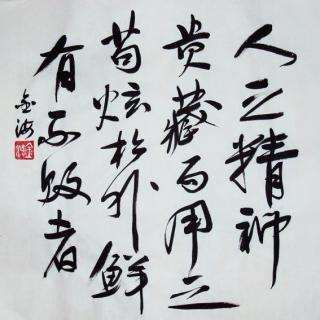 人之精神
贵藏而用之
苟炫于外鲜
有不败者
金海